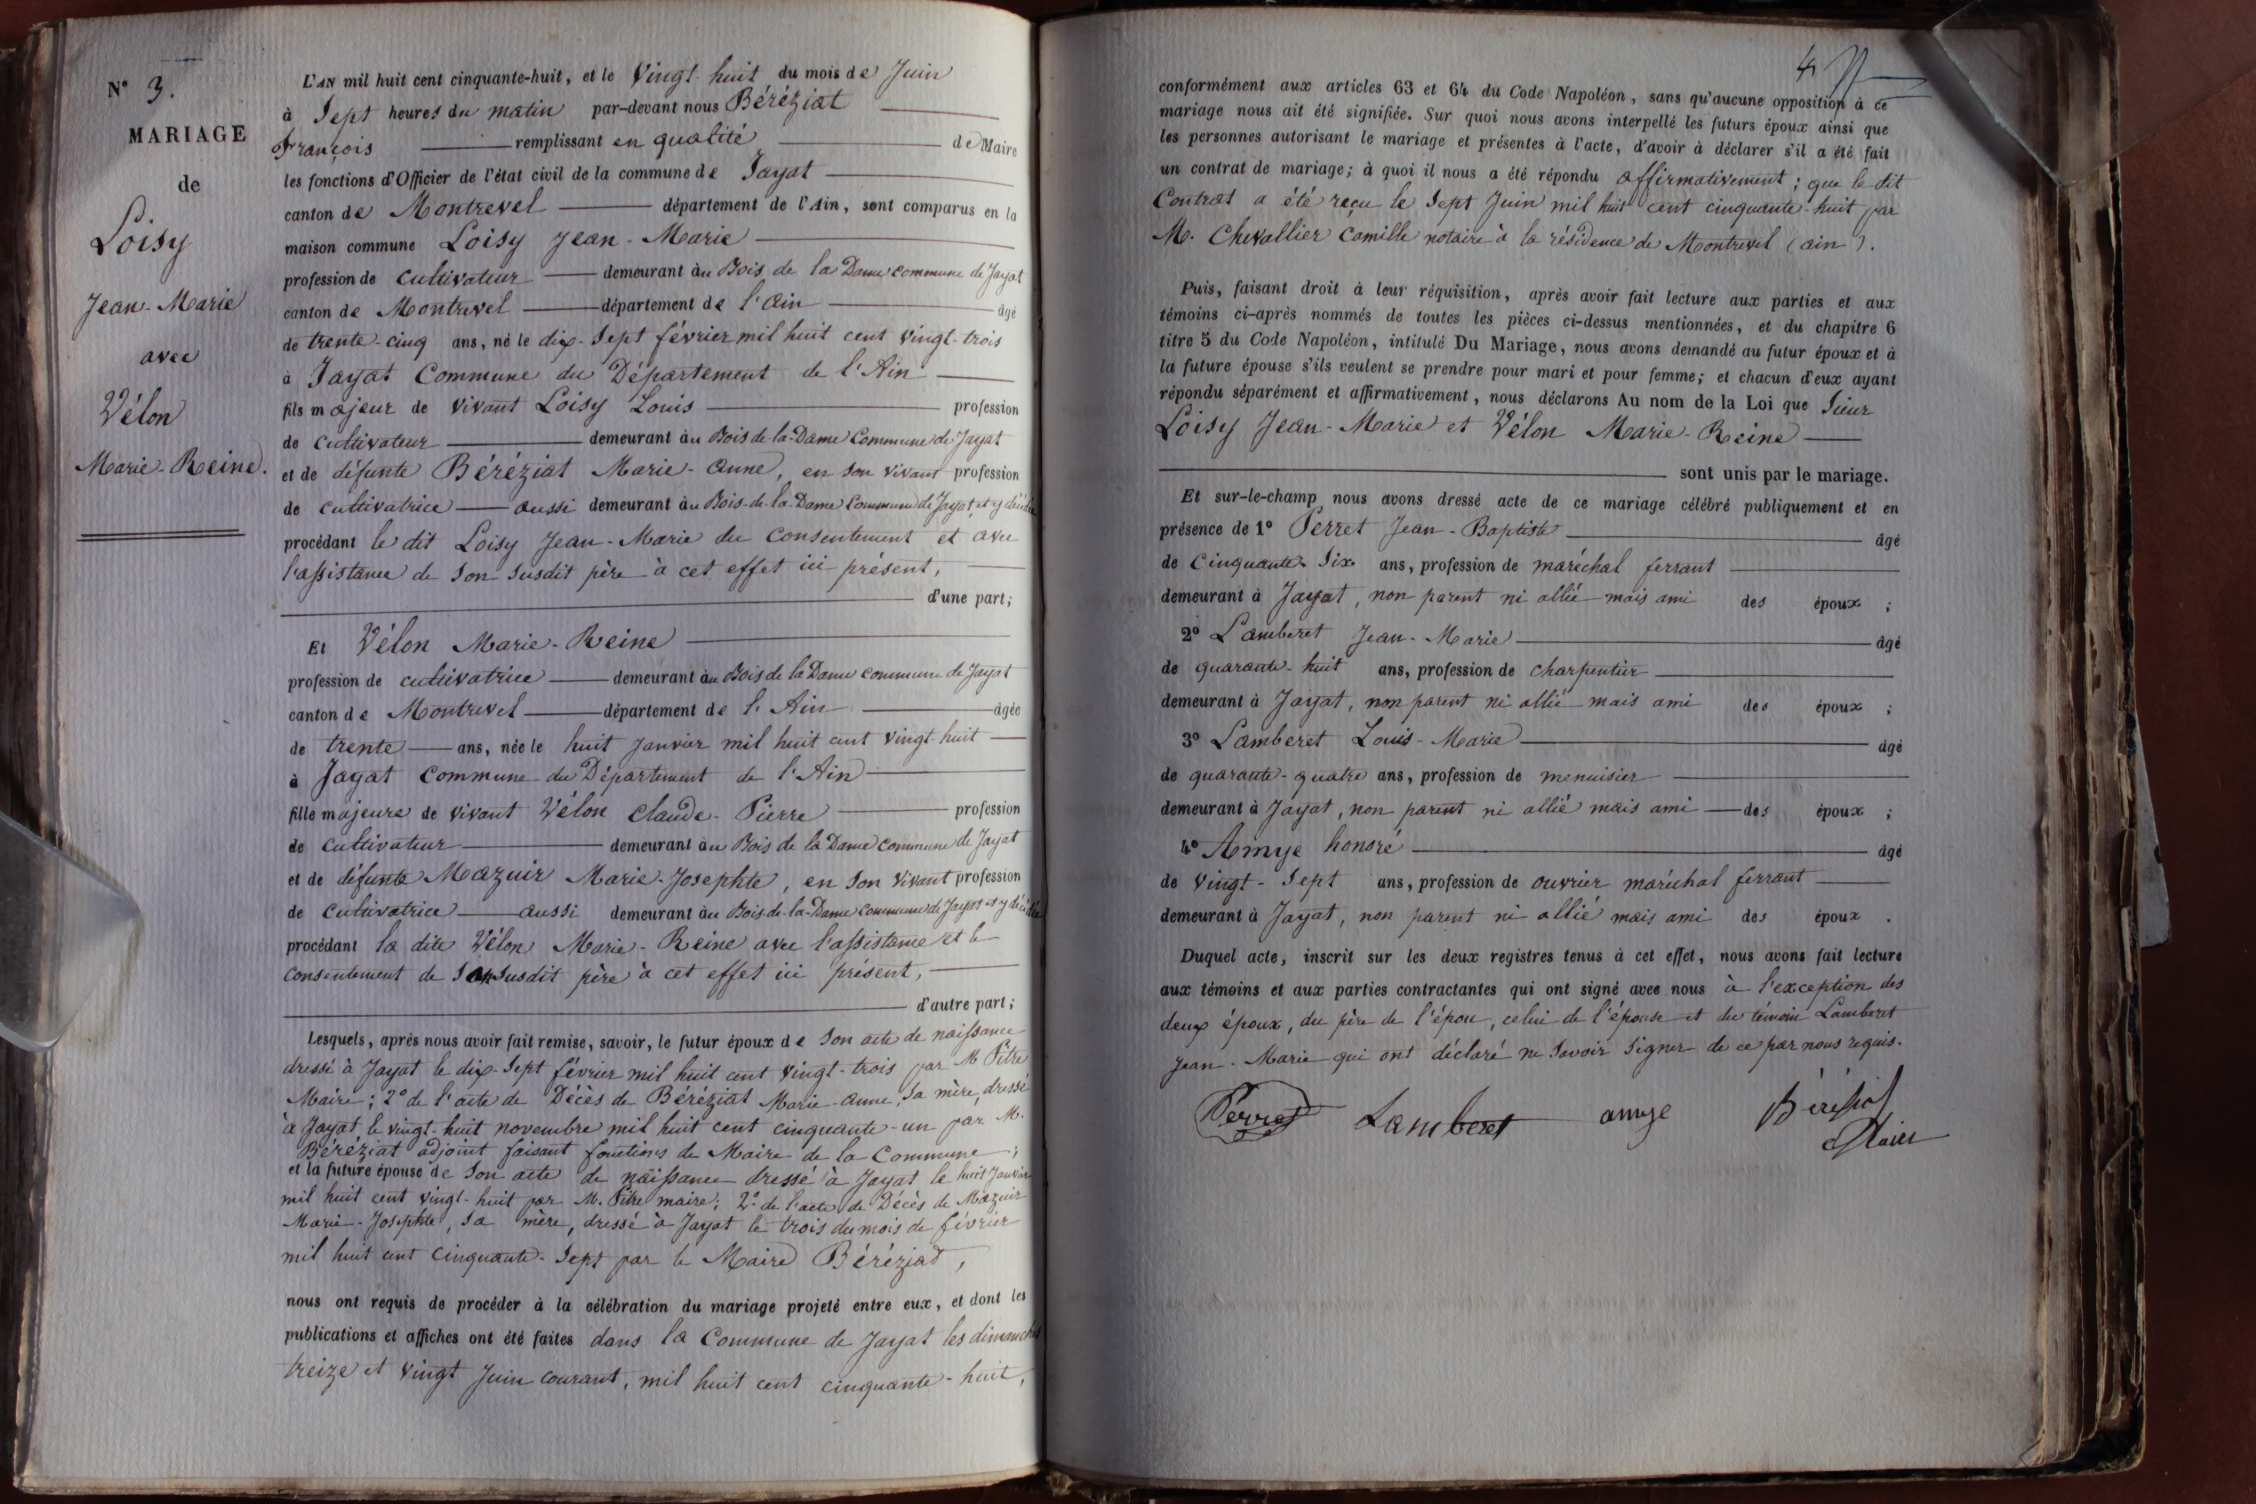 N° 3.
MARIAGE
de
Loisy
Jean-Marie
avec
Vélon
Marie-Reine.
L'AN mil huit cent cinquante-huit, et le Vingt-huit du mois de Juin
à Sept heures du matin par-devant nous Béréziat
François remplissant en qualité de Maire
les fonctions d'Officier de l'état civil de la commune de Jayat
canton de Montrevel département de l'Ain, sont comparus en la
maison commune Loisy Jean-Marie
profession de cultivateur demeurant au Bois de la Dame commune de Jayat
canton de Montrevel département de l'Ain âgé
de trente-cinq ans, né le dix-Sept février mil huit cent vingt-trois
à Jayat Commune du Département de l'Ain
fils majeur de vivant Loisy Louis profession
de cultivateur demeurant au Bois de la-Dame Commune de Jayat
et de défunte Béréziat Marie-Anne, en son vivant profession
de cultivatrice aussi demeurant au Bois-de-la-Dame Commune de Jayat, et y décédée
procédant le dit Loisy Jean-Marie du consentement et avec
l'assistance de son susdit père à cet effet ici présent,
d'une part;
Et Vélon Marie-Reine
profession de cultivatrice demeurant au Bois de la Dame commune de Jayat
canton de Montrevel département de l'Ain âgée
de trente ans, née le huit Janvier mil huit cent vingt-huit
à Jayat Commune du Département de l'Ain
fille majeure de vivant Vélon Claude-Pierre profession
de cultivateur demeurant au Bois de la Dame commune de Jayat
et de défunte Mazuir Marie-Josephte, en son vivant profession
de cultivatrice aussi demeurant au Bois-de-la-Dame commune de Jayat et y décédée
procédant la dite Vélon Marie-Reine avec l'assistance et le
consentement de son susdit père à cet effet ici présent,
d'autre part;
Lesquels, après nous avoir fait remise, savoir, le futur époux de son acte de naissance
dressé à Jayat le dix-Sept février mil huit cent vingt-trois par M Pitre
Maire; 2° de l'acte de Décès de Béréziat Marie-Anne, sa mère, dressé
à Jayat le vingt-huit novembre mil huit cent cinquante-un par M.
Béréziat adjoint faisant fonctions de Maire de la Commune;
et la future épouse de son acte de naissance dressé à Jayat le huit Janvier
mil huit cent vingt-huit par M. Pitre maire; 2° de l'acte de Décès de Mazuir
Marie-Josephte, sa mère, dressé à Jayat le trois du mois de février
mil huit cent cinquante-Sept par le Maire Béréziat,
nous ont requis de procéder à la célébration du mariage projeté entre eux, et dont les
publications et affiches ont été faites dans la Commune de Jayat les dimanches
treize et vingt Juin courant, mil huit cent cinquante-huit,
conformément aux articles 63 et 64 du Code Napoléon, sans qu'aucune opposition à ce
mariage nous ait été signifiée. Sur quoi nous avons interpellé les futurs époux ainsi que
les personnes autorisant le mariage et présentes à l'acte, d'avoir à déclarer s'il a été fait
un contrat de mariage; à quoi il nous a été répondu affirmativement; que le dit
Contrat a été reçu le Sept Juin mil huit cent cinquante-huit par
M. Chevallier Camille notaire à la résidence de Montrevel (ain).
Puis, faisant droit à leur réquisition, après avoir fait lecture aux parties et aux
témoins ci-après nommés de toutes les pièces ci-dessus mentionnées, et du chapitre 6
titre 5 du Code Napoléon, intitulé Du Mariage, nous avons demandé au futur époux et à
la future épouse s'ils veulent se prendre pour mari et pour femme; et chacun d'eux ayant
répondu séparément et affirmativement, nous déclarons Au nom de la Loi que Sieur
Loisy Jean-Marie et Vélon Marie-Reine
sont unis par le mariage.
Et sur-le-champ nous avons dressé acte de ce mariage célébré publiquement et en
présence de 1° Perret Jean-Baptiste âgé
de cinquante-six ans, profession de maréchal ferrant
demeurant à Jayat, non parent ni allié mais ami des époux;
2° Lamberet Jean-Marie âgé
de quarante-huit ans, profession de charpentier
demeurant à Jayat, non parent ni allié mais ami des époux;
3° Lamberet Louis-Marie âgé
de quarante-quatre ans, profession de menuisier
demeurant à Jayat, non parent ni allié mais ami des époux;
4° Amye honoré âgé
de vingt-Sept ans, profession de ouvrier maréchal ferrant
demeurant à Jayat, non parent ni allié mais ami des époux.
Duquel acte, inscrit sur les deux registres tenus à cet effet, nous avons fait lecture
aux témoins et aux parties contractantes qui ont signé avec nous à l'exception des
deux époux, du père de l'époux, celui de l'épouse et du témoin Lamberet
Jean-Marie qui ont déclaré ne savoir signer de ce par nous requis.
Perret Lamberet amye Béréziat
Maire